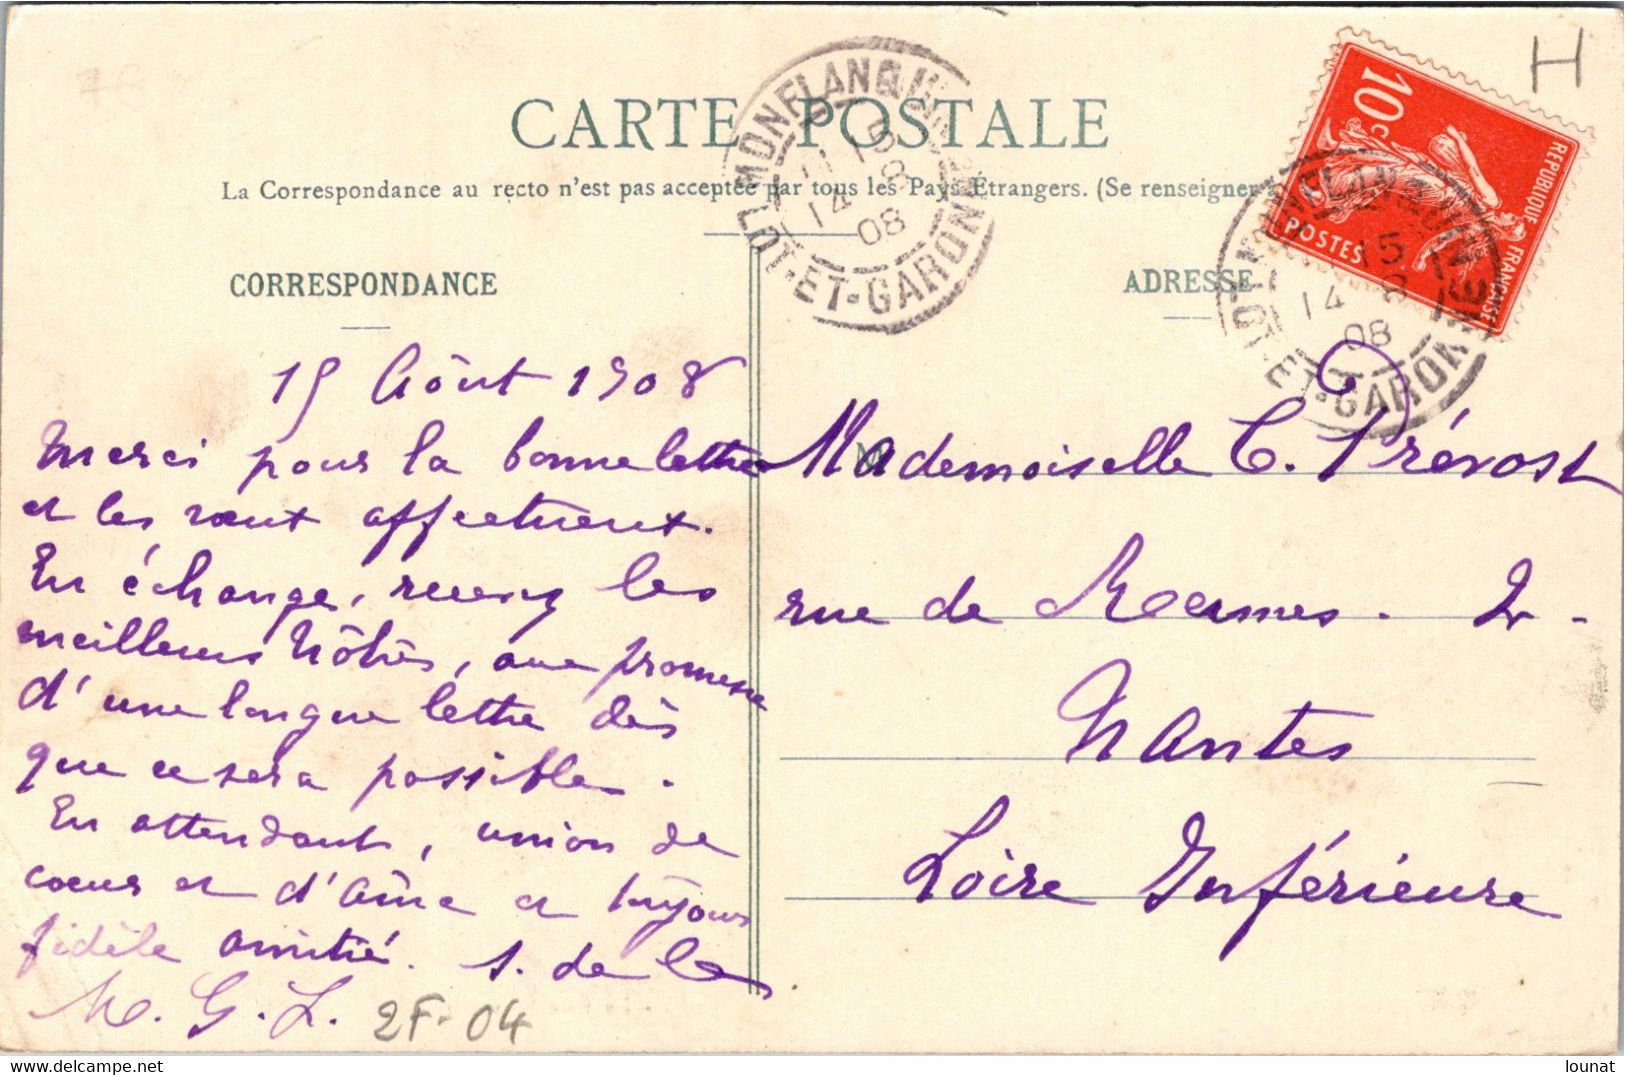 H
CARTE POSTALE
La Correspondance au recto n'est pas acceptée par tous les Pays Étrangers. (Se renseigner
MONFLANQUIN
15
14 8
08
LOT-ET-GARONNE
10c
REPUBLIQUE FRANÇAISE
POSTES
15
14 8
08
LOT-ET-GARONNE
CORRESPONDANCE
ADRESSE
15 Août 1908
Merci pour la bonne lettre
et les vœux affectueux.
En échange, recevez les
meilleurs nôtres, avec promesse
d'une longue lettre dès
que ce sera possible.
En attendant, union de
cœur et d'âme et toujours
fidèle amitié. S. de la
M. G. L.
2F-04
M
Mademoiselle C. Prévost
rue de Rennes. 2.
Nantes
Loire Inférieure
delcampe.net
lounat